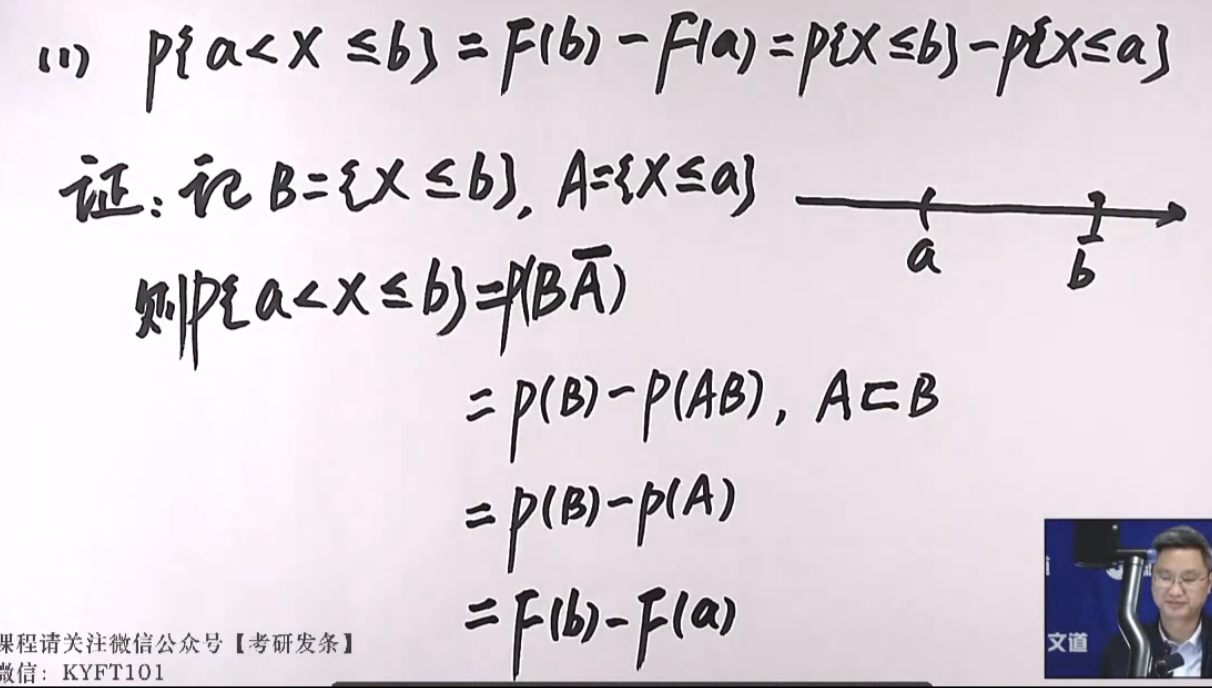 (1) P{a<X≤b}=F(b)-F(a)=P{X≤b}-P{X≤a}
证:记B={X≤b},A={X≤a}
a b
则P{a<X≤b}=P(BA̅)
=P(B)-P(AB),A⊂B
=P(B)-P(A)
=F(b)-F(a)
文道
课程请关注微信公众号【考研发条】
微信:KYFT101